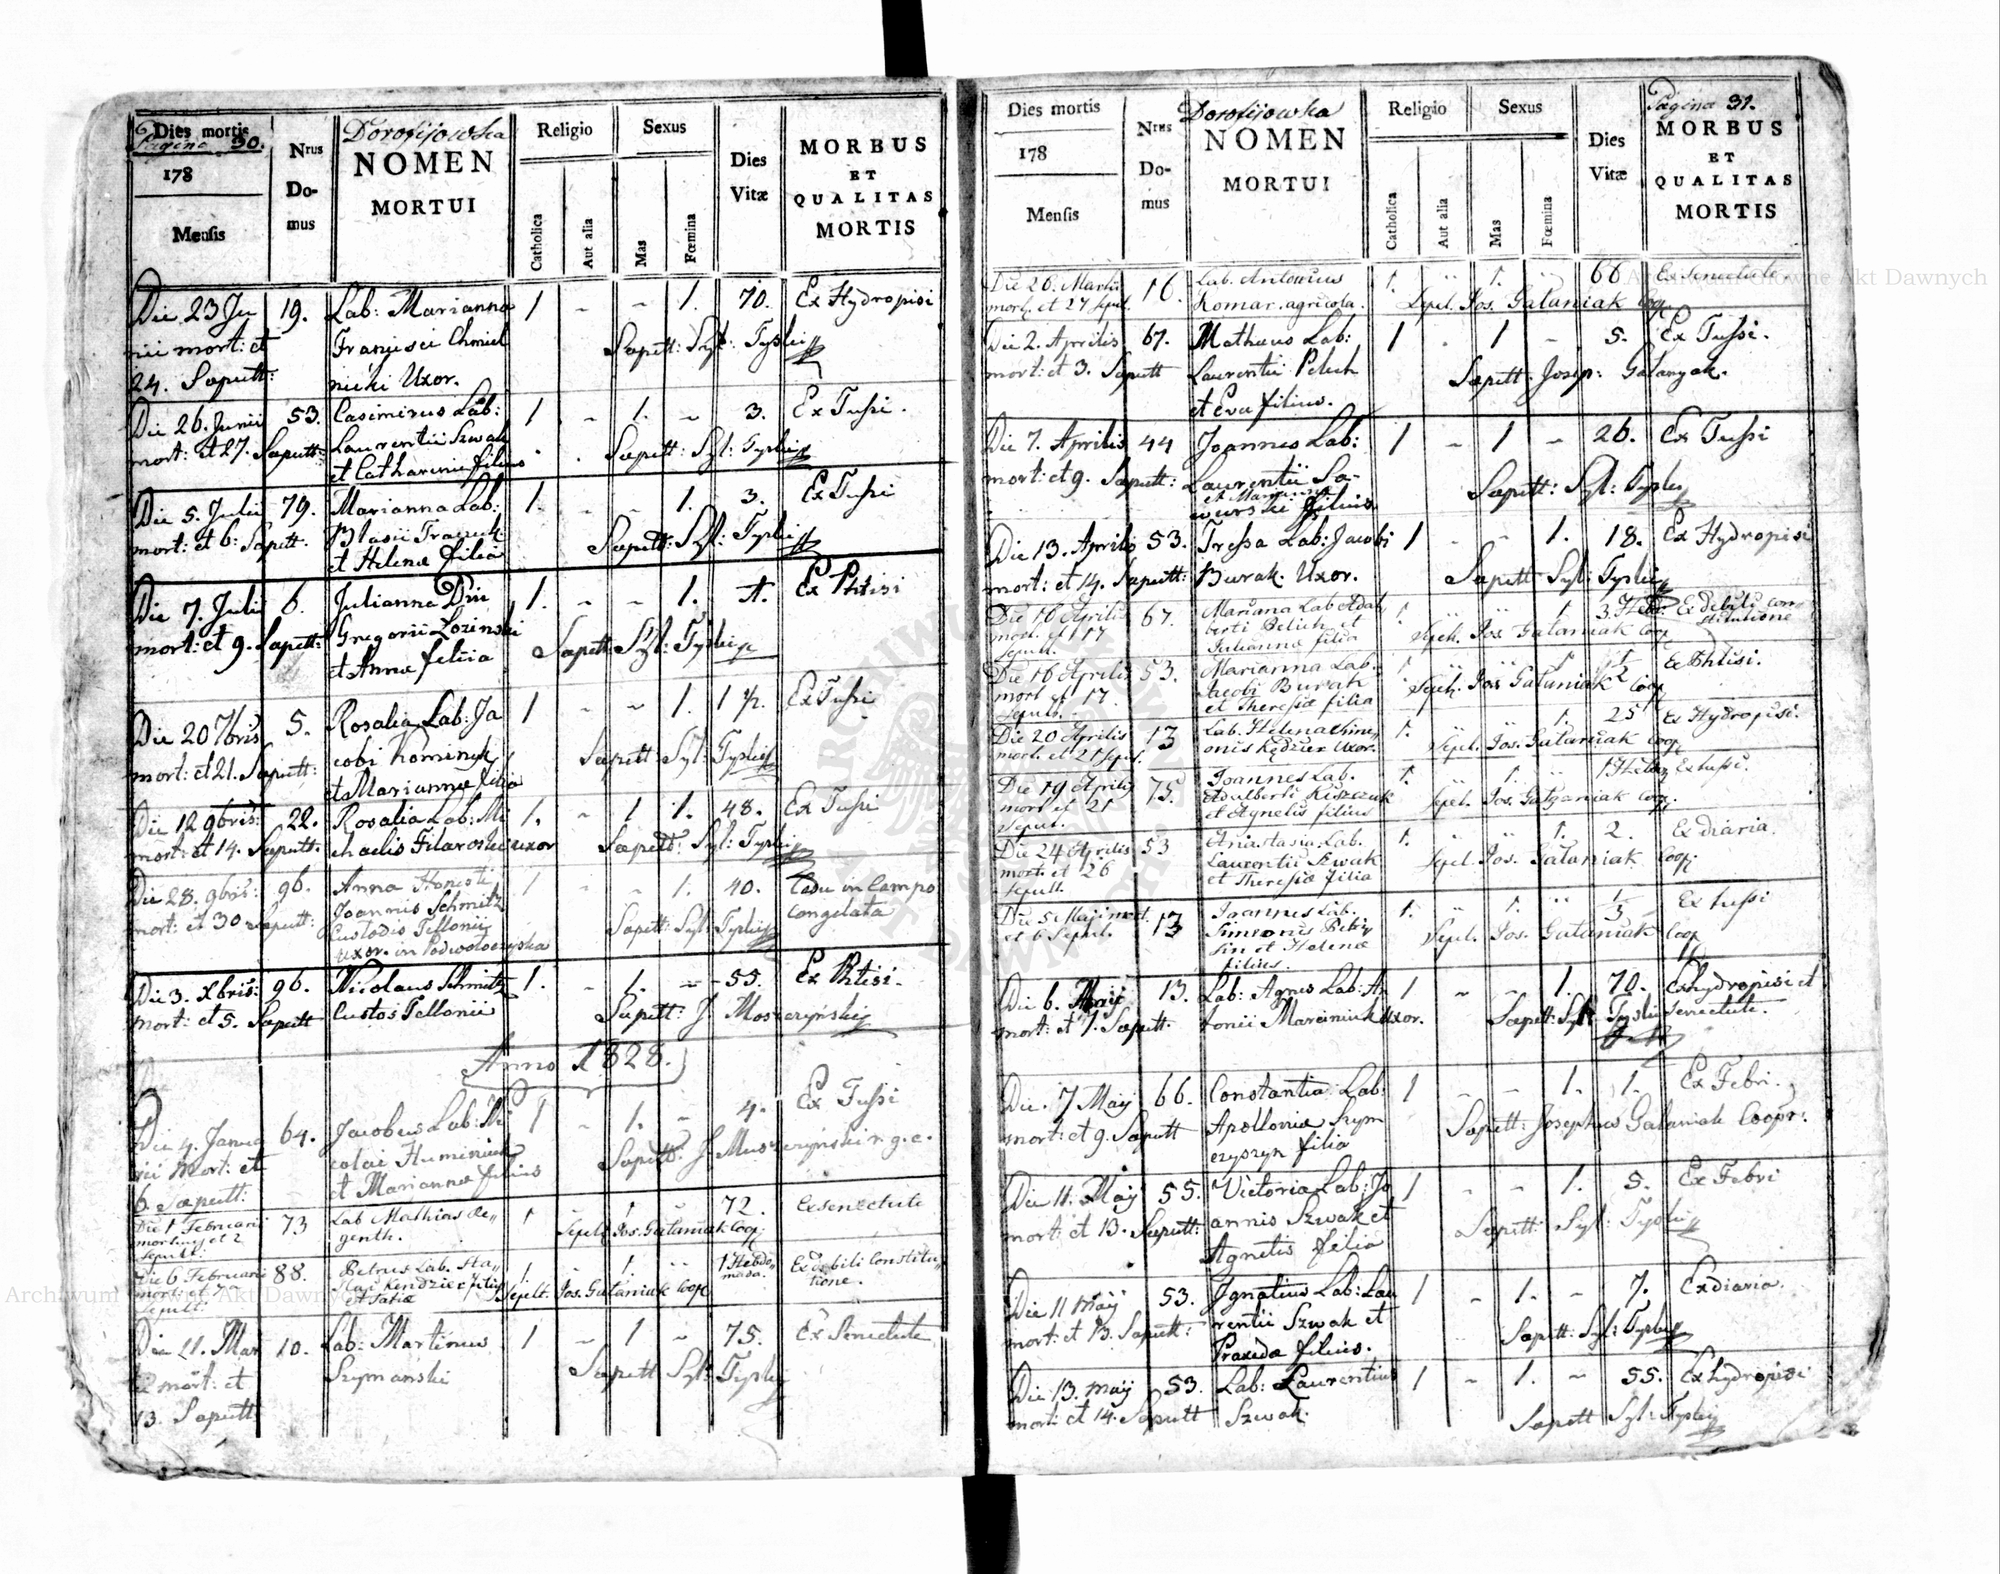 Dies mortis
Pagina 30.
178
Mensis
Nrus Domus
Dorofijowska
NOMEN
MORTUI
Religio
Catholica
Aut alia
Sexus
Mas
Fœmina
Dies
Vitæ
MORBUS
ET
QUALITAS
MORTIS
Die 23 Ju 19. Lab: Marianna 1 - - 1. 70. Ex Hydropisi
nii mort: et Francisci Chmiel Sepult: Syl: Tysliń
24. Sepult: nicki Uxor.
Die 26. Junii 53. Casimirus Lab: 1. - 1. - 3. Ex Tussi.
mort: et 27. Sepult: Laurentii Szwak Sepult: Syl: Tysliń
et Catharina filius
Die 5. Julii 79. Marianna Lab: 1. - - 1. 3. Ex Tussi
mort: et 6: Sepult: Blasii Sepult: Syl:
et Helena filia
Die 7. Julii 6. Julianna 1. - - 1. Ex Phtisi
mort: et 9. Sepult: Gregorii Łozinski Sepult: Syl:
et Anna filia
Die 20 7bris 5. Rosalia Lab: Ja 1 - - 1. 1 ½. Ex Tussi
mort: et 21. Sepult: cobi Kominek Sepult Syl:
et Marianna filia
Die 12 9bris: 22. Rosalia Lab: Mi 1. - 1 1. 48. Ex Tussi
mort: et 14. Sepult: chaelis Filaroski uxor Sepult: Syl:
Die 28. 9bris: 96. Anna Honesti 1 - - 1. 40. Casu in Campo
mort: et 30 Sepult: Joannis Schmitz Sepult: Syl: congelata
Custodis Tellonii
uxor. in Podwołoczyska
Die 3. Xbris: 96. Nicolaus Schmitz 1. - 1. - 55. Ex Phtisi.
mort: et 5. Sepult Custos Tellonii Sepult: J. Moszczyński
Anno 1828.
Die 4. Janua 64. Jacobus Lab: Ni 1 - 1. - 4. Ex Tussi
rii Mort: et colai Huminiuk Sepult: J. Mus
6. Sepult: et Marianna filius
Die 1 Februarii 73 Lab Mathias Re„ 1 1 72. Ex senectute
mortuus et 2 genth. Sepult Jos. Gałaniak Coop.
Sepult:
Die 6 Februarii 88. Petrus Lab. Sta„ 1. 1. 1 Hebdo„ Ex debili Constitu„
mort: et 7 Kendzier filius Sepult. Jos. Gałaniak Coop. mada. tione.
Sepult.
Die 11. Mar 10. Lab: Martinus 1 - 1 - 75. Ex Senectute
tii mort: et Szymanski Sepult Syl:
13. Sepult:
Dies mortis
178
Mensis
Nrus Domus
Dorofijowska
NOMEN
MORTUI
Religio
Catholica
Aut alia
Sexus
Mas
Fœmina
Dies
Vitæ
Pagina 31.
MORBUS
ET
QUALITAS
MORTIS
Die 26. Martii 16. Lab. Antonius 1. „ 1. „ 66 Ex Senectute
mort. et 27 sepul. Komar. agricola. Sepul. Jos. Gałaniak Coop.
Die 2. Aprilis 67. Matheus Lab: 1 . 1 - 5. Ex Tussi.
mort: et 3. Sepult Laurentii Peluh Sepult. Josep: Gałanyak.
et Eva filius.
Die 7. Aprilis 44 Joannes Lab: 1 - 1 - 26. Ex Tussi
mort: et 9. Sepult: Laurentii Sa- Sepult: Syl:
et Marianna
wurski filius
Die 13. Aprilis 53. Tressa Lab: Jacobi 1 - - 1. 18. Ex Hydropisi
mort: et 14. Sepult: Burak. Uxor. Sepult Syl:
Die 16 Aprilis 67. Mariana Lab Adal„ 1. „ „ 1 3 Hebd. Ex debili con„
mort. et 17 berti Peluh et Sepul. Jos. Gałaniak Coop stitutione
Sepult. Julianna filia
Die 16 Aprilis 53. Marianna Lab. 1. „ „ 1 ½ Ex Phtisi.
mort et 17. Jacobi Burak Sepul. Jos Gałaniak Coop
Sepult. et Theresiæ filia
Die 20 Aprilis 13 Lab. Helena Sime„ 1. 1. 25 Ex Hydropisi.
mort. et 21 sepul. onis Kędzier Uxor. Sepul. Jos. Gałaniak Coop
Die 19 Aprilis 75. Joannes Lab. 1. „ 1. „ 1 Hebd. Ex tussi.
mort et 21 Adalberti Kiszczuk Sepul. Jos. Gałaniak Coop.
Sepult. et Agnetis filius
Die 24 Aprilis 53 Anastasia Lab. 1. „ „ 1. 2. Ex diaria.
mort. et 26 Laurentii Szwak Sepul. Jos. Gałaniak Coop.
Sepult. et Theresiæ filia
Die 5 Maji mort. 13 Joannes Lab. 1. „ 1. „ ⅓ Ex tussi
et 6 Sepul. Simeonis Sepul. Jos. Gałaniak Coop
et Helenæ
filius.
Die 6. Maij 13. Lab: Agnes Lab: An 1 - - 1. 70. Ex hydropisi et
mort: et 7. Sepult. tonii Marciniuk uxor. Sepult: Syl: Senectute.
Die. 7 Maij 66. Constantia Lab: 1 - - 1. 1. Ex Febri.
mort: et 9. Sepult Apollonia Szym Sepult: Josephus Gałaniak Coopr:
czyszyn filia
Die 11. Maij 55. Victoria Lab: Jo 1 - - 1. 5. Ex Febri
mort: et 13. Sepult: annis Szwak et Sepult: Syl:
Agnetis filia
Die 11 Maij 53. Ignatius Lab: Lau 1 - 1. - 7. Ex diaria.
mort: et 13. Sepult: rentii Szwak et Sepult: Syl:
Praxeda filius.
Die 13. Maij 53. Lab: Laurentius 1 - 1. - 55. Ex hydropisi
mort: et 14. Sepult Szwak. Sepult Syl:
Archiwum Główne Akt Dawnych
Archiwum Główne Akt Dawnych